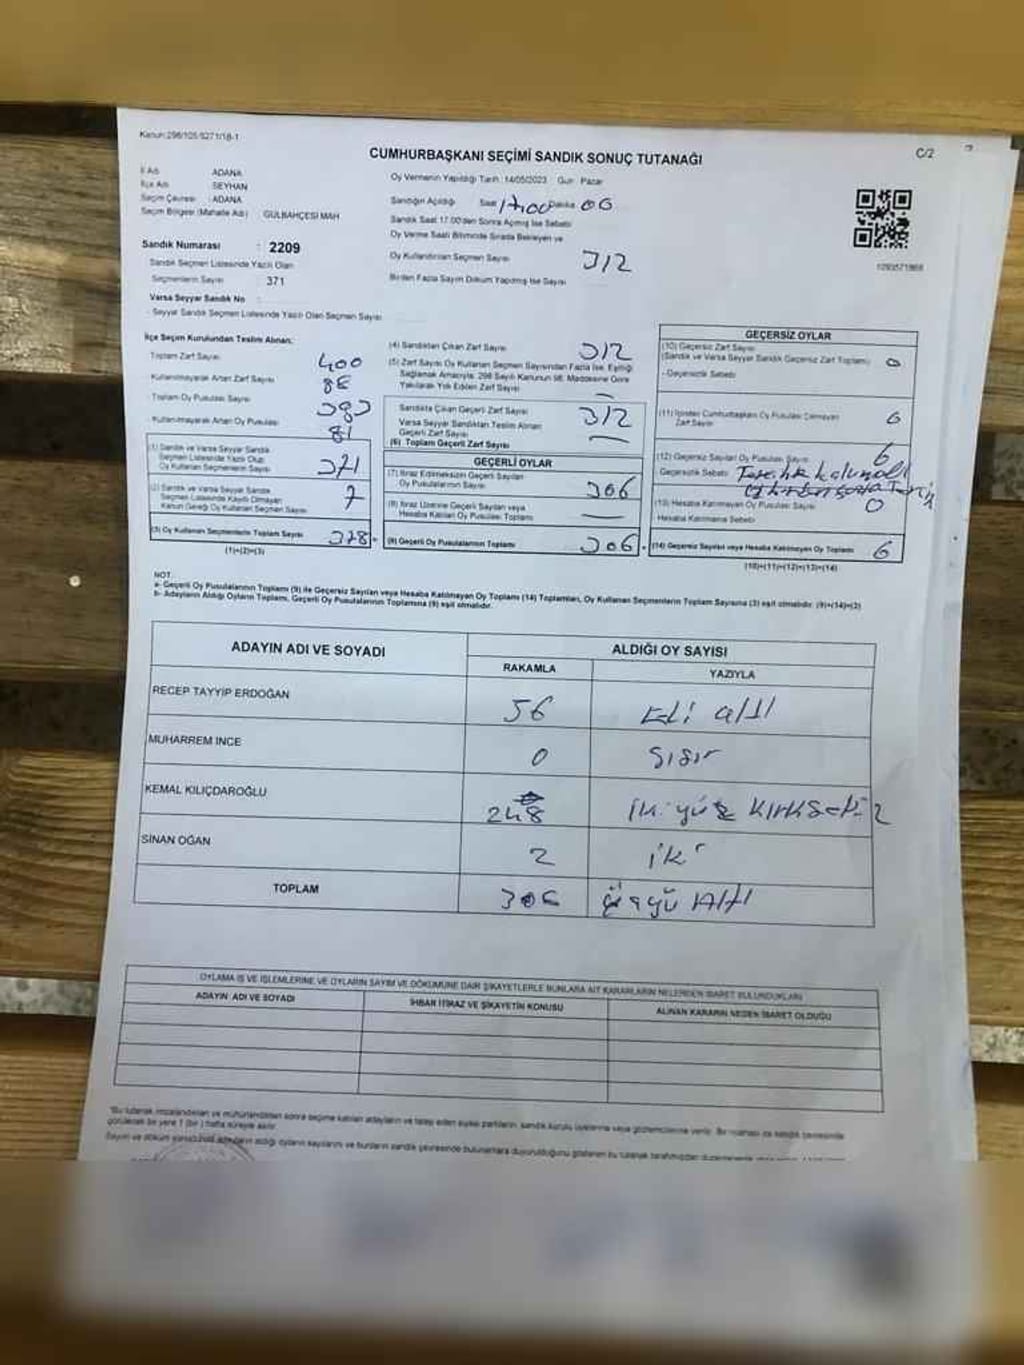 Kanun:298/105/5271/18-1
C/2
CUMHURBAŞKANI SEÇİMİ SANDIK SONUÇ TUTANAĞI
İl Adı ADANA
İlçe Adı SEYHAN
Seçim Çevresi : ADANA
Seçim Bölgesi (Mahalle Adı) GÜLBAHÇESİ MAH
Sandık Numarası : 2209
Sandık Seçmen Listesinde Yazılı Olan
Seçmenlerin Sayısı : 371
Varsa Seyyar Sandık No :
- Seyyar Sandık Seçmen Listesinde Yazılı Olan Seçmen Sayısı
Oy Vermenin Yapıldığı Tarih :14/05/2023 Gün : Pazar
Sandığın Açıldığı Saat 17:00 Dakika 00
Sandık Saat 17.00'den Sonra Açılmış İse Sebebi
Oy Verme Saati Bitiminde Sırada Bekleyen ve
Oy Kullandırılan Seçmen Sayısı 312
Birden Fazla Sayım Döküm Yapılmış İse Sayısı
İlçe Seçim Kurulundan Teslim Alınan:
Toplam Zarf Sayısı 400
Kullanılmayarak Artan Zarf Sayısı 88
Toplam Oy Pusulası Sayısı
Kullanılmayarak Artan Oy Pusulası 81
(1) Sandık ve Varsa Seyyar Sandık
Seçmen Listesinde Yazılı Olup
Oy Kullanan Seçmenlerin Sayısı 371
(2) Sandık ve Varsa Seyyar Sandık
Seçmen Listesinde Kayıtlı Olmayan
Kanun Gereği Oy Kullanan Seçmen Sayısı 7
(3) Oy Kullanan Seçmenlerin Toplam Sayısı 378
(1)+(2)=(3)
(4) Sandıktan Çıkan Zarf Sayısı 312
(5) Zarf Sayısı Oy Kullanan Seçmen Sayısından Fazla İse, Eşitliği
Sağlamak Amacıyla; 298 Sayılı Kanunun 98. Maddesine Göre
Yakılarak Yok Edilen Zarf Sayısı —
Sandıkta Çıkan Geçerli Zarf Sayısı 312
Varsa Seyyar Sandıktan Teslim Alınan
Geçerli Zarf Sayısı —
(6) Toplam Geçerli Zarf Sayısı
GEÇERLİ OYLAR
(7) İtiraz Edilmeksizin Geçerli Sayılan
Oy Pusulalarının Sayısı 306
(8) İtiraz Üzerine Geçerli Sayılan veya
Hesaba Katılan Oy Pusulası Toplamı —
(9) Geçerli Oy Pusulalarının Toplamı 306
GEÇERSİZ OYLAR
(10) Geçersiz Zarf Sayısı
(Sandık ve Varsa Seyyar Sandık Geçersiz Zarf Toplamı) 0
- Geçersizlik Sebebi
(11) İçinden Cumhurbaşkanı Oy Pusulası Çıkmayan
Zarf Sayısı 0
(12) Geçersiz Sayılan Oy Pusulası Sayısı 6
Geçersizlik Sebebi
(13) Hesaba Katılmayan Oy Pusulası Sayısı 0
- Hesaba Katılmama Sebebi
(14) Geçersiz Sayılan veya Hesaba Katılmayan Oy Toplamı 6
(10)+(11)+(12)+(13)=(14)
NOT:
a- Geçerli Oy Pusulalarının Toplamı (9) ile Geçersiz Sayılan veya Hesaba Katılmayan Oy Toplamı (14) Toplamları, Oy Kullanan Seçmenlerin Toplam Sayısına (3) eşit olmalıdır. (9)+(14)=(3)
b- Adayların Aldığı Oyların Toplamı, Geçerli Oy Pusulalarının Toplamına (9) eşit olmalıdır.
ADAYIN ADI VE SOYADI ALDIĞI OY SAYISI
RAKAMLA YAZIYLA
RECEP TAYYİP ERDOĞAN 56 Elli altı
MUHARREM İNCE 0 Sıfır
KEMAL KILIÇDAROĞLU 248 İki yüz Kırk sekiz
SİNAN OĞAN 2 iki
TOPLAM 306 Üçyü Altı
OYLAMA İŞ VE İŞLEMLERİNE VE OYLARIN SAYIM VE DÖKÜMÜNE DAİR ŞİKAYETLERLE BUNLARA AİT KARARLARIN NELERDEN İBARET BULUNDUKLARI
ADAYIN ADI VE SOYADI İHBAR İTİRAZ VE ŞİKAYETİN KONUSU ALINAN KARARIN NEDEN İBARET OLDUĞU
*Bu tutanak imzalandıktan ve mühürlendikten sonra seçime katılan adayların ve talep eden siyasi partilerin, sandık kurulu üyelerine veya gözlemcilerine verilir. Bir nüshası da sandık çevresinde
görülecek bir yere 1 (bir) hafta süreyle asılır.
Sayım ve döküm sonucunda adayların aldığı oyların sayılarını ve bunların sandık çevresinde bulunanlara duyurulduğunu gösteren bu tutanak tarafımızdan